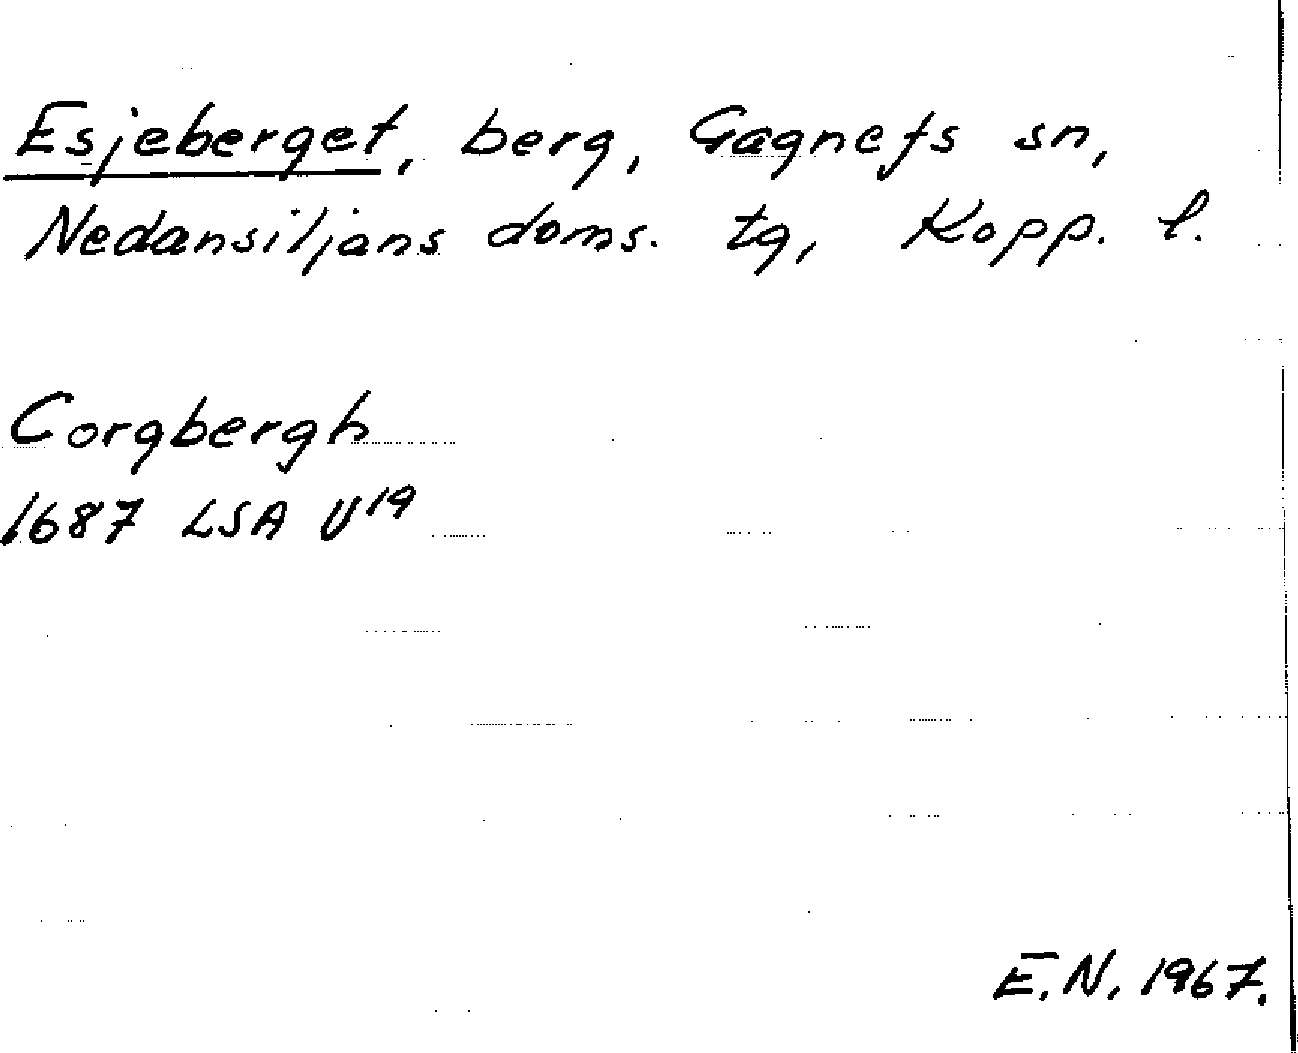 Esjeberget, berg, Gagnefs sn,
Nedansiljans doms. tg, Kopp. l.
Corgbergh
1687 LSA U¹⁹
E.N. 1967.